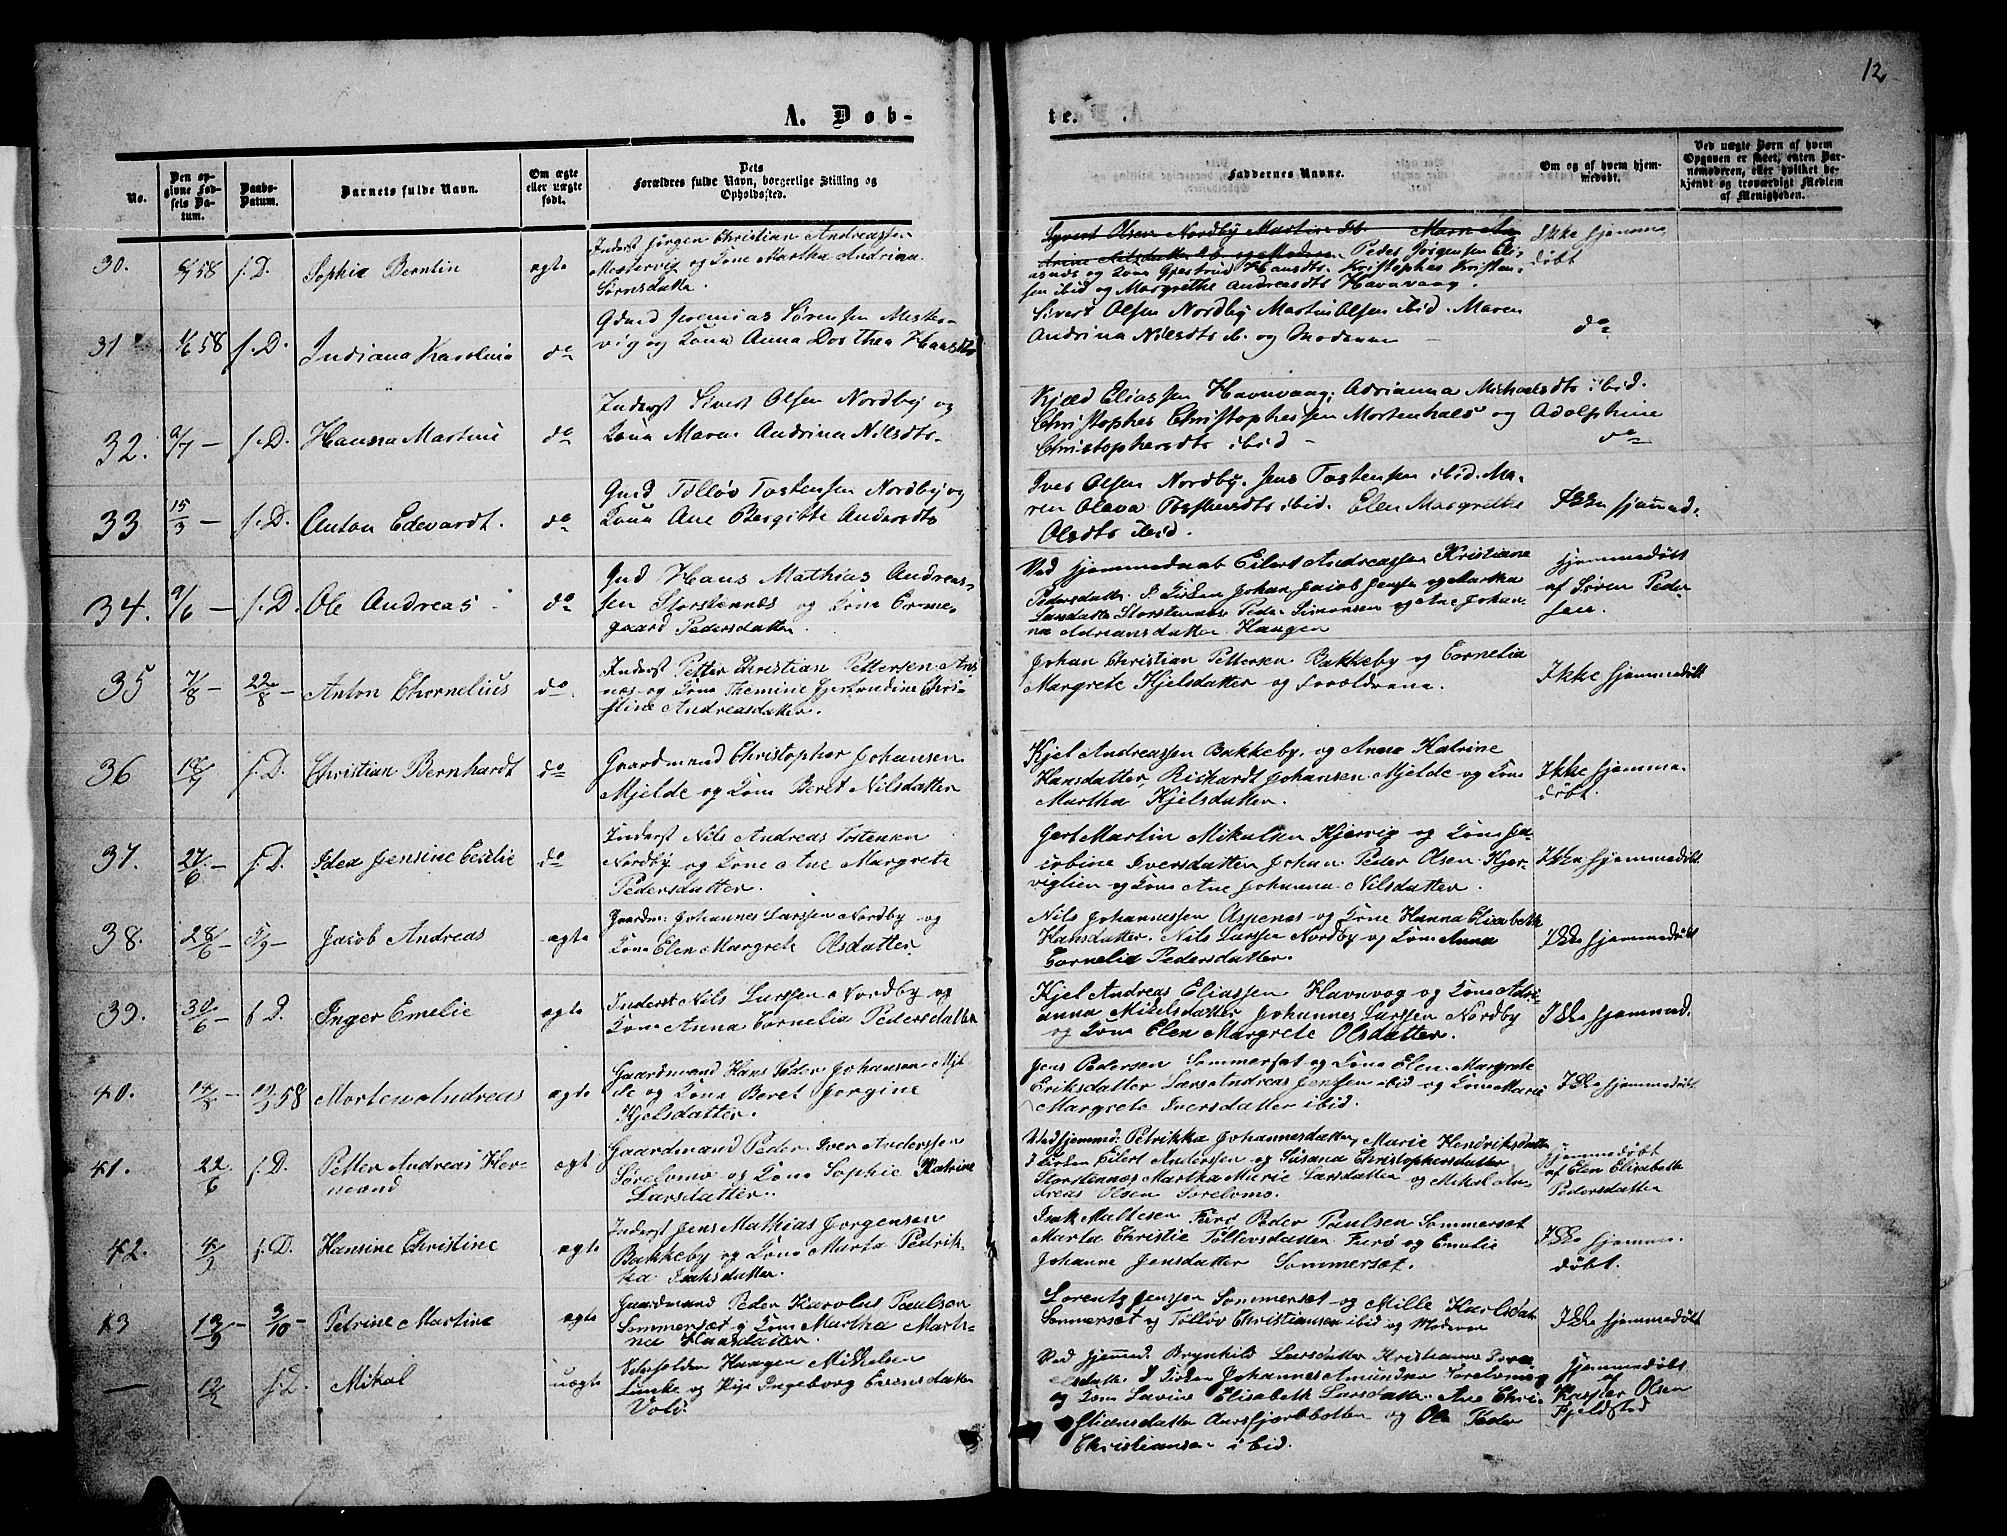 12
A. Døb-
te.
No.
Den op-
givne Fød-
sels Da-
tum.
Daabs-
Datum.
Barnets fulde Navn.
Om ægte
eller uægte
født.
Dets
Forældres fulde Navn, borgerlige Stilling og
Opholdssted.
Faddernes Navne.
Om og af hvem hjem-
medøbt.
Ved uægte Børn af hvem
Opgaven er skeet, enten Bar-
nemoderen, eller hvilket be-
kjendt og troværdigt Medlem
af Menigheden.
30.
58
s. D.
Sophie Berntin
ægte
Inderst Jørgen Christian Andreassen
Mestervig og Kone Martha Andrina
Sørnsdatter.
Syvert Olsen Nordby Martin
Peder Jørgensen Eli-
Hansdtr Kristopher Kristen-
sen ibid og Margrethe Andreasdtr Havnvaag.
Ikke hjemme
døbt
31
1/6 58
s. D.
Indiana Karolina
do
Gdmd Jeremias Sørensen Mester-
vig og Kone Anna Dorthea Hansdtr
Sivert Olsen Nordby Martin Olsen ibid. Maren
Andrina Nilsdtr ib. og Moderen
do
32.
9/7 -
s. D.
Hanna Martine
do
Inderst Sivert Olsen Nordby og
Kone Maren Andrina Nilsdtr.
Kjeld Eliassen Havnvaag, Adrianna Michaelsdtr ibid.
Christopher Christophersen Mortenhals og Adolphine
Christophersdtr ibid -
do
33
15/3 -
s. D.
Anton Edevardt.
do
Gmd Tølløv Tostensen Nordby og
Kone Ane Bergitte Andersdtr
Iver Olsen Nordby. Jens Tostensen ibid. Ma-
ren Olava Tostensdtr ibid. Elen Margrethe
Olsdtr ibid.
Ikke hjemmed.
34.
9/6 -
s. D.
Ole Andreas
do
Gmd Hans Mathias Andreas-
sen Storstennes og Kone Orme-
gaard Pedersdatter.
Ved Hjemmedaab Eilert Andreassen Kristiane
Pedersdatter. I Kirken Johan Jacob Jensen og Martha
Larsdatter Storstennes Peder Simonsen og Ane Johan-
na Adriansdatter Haugen
hjemmedøbt
af Søren Peder
sen.
35
7/8 -
22/8 -
Anton Chornelius
do
Inderst Petter Christian Pettersen
nes og Kone Themine Gjertrudine Chri-
stine Andreasdatter.
Johan Christian Pettersen Bakkeby og Cornelia
Margrete Kjelsdatter og Forældrene.
Ikke hjemmedøbt
36
18/7
s. D.
Christian Bernhardt
do
Gaardmand Christopher Johansen
Mjelde og Kone Beret Nilsdatter
Kjel Andreassen Bakkeby, og Anna Katrine
Hansdatter, Rickardt Johansen Mjelde og Kone
Martha Kjelsdatter.
Ikke hjemme-
døbt.
37.
27/6 -
s. D.
Idea Jensine Cecilie
do
Inderst Nils Andreas Tostensen
Nordby og Kone Ane Margrete
Pedersdatter.
Gert Martin Mikalsen Kjervig og Kone Ja-
cobine Iversdatter Johan Peder Olsen Kjer-
viglien og Kone Ane Johanna Nilsdatter.
Ikke hjemmedøbt
38.
28/6 -
5/9 -
Jacob Andreas
ægte
Gaardm: Johannes Larssen Nordby og
Kone Elen Margrete Olsdatter.
Nils Johannessen Aspenes og Kone Hanna Elisabeth
Hansdatter. Nils Larssen Nordby og Kone Anna
Cornelia Pedersdatter.
Ikke hjemmedøbt
39.
30/6 -
s D.
Inger Emelie
ægte
Inderst Nils Larssen Nordby og
Kone Anna Cornelia Pedersdatter
Kjel Andreas Eliassen Havnvog og Kone Adri-
anna Mikelsdatter Johannes Larssen Nordby
og Kone Elen Margrete Olsdatter.
Ikke hjemmed.
40.
58
Morten Andreas
ægte
Gaardmand Hans Peder Johansen Mjel-
de og Kone Beret Jorgine
Kjelsdatter.
Jens Pedersen Sommerset og Kone Elen Margrete
Eriksdatter Lars Andreas Jenssen ibid og Kone Marie
Margrete Iversdatter ibid.
Ikke hjemmedøbt
41.
22/6
s. D.
Petter Andreas Her-
mand
ægt
Gaardmand Peder Iver Anderssen
Sørelvmo og Kone Sophie Katrine
Larsdatter.
Ved Hjemmed: Petrikka Johannesdatter, Marie Hendriksdatter
I Kirken Eilert Anderssen og Susana Christophersdatter
Storstennes Martha Marie Larsdatter og Mikal An-
dreas Olsen Sørelvmo.
hjemmedøbt
af Elen Elisabeth
Pedersdatter
42.
s. D.
Hansine Christine
ægte
Inderst Jens Mathias Jørgensen
Bakkeby og Kone Marta Petrik-
ka Isaksdatter.
Isak Maltesen Furø Peder Paulsen Sommerset
Marta Christie Tøllevsdatter Furø og Emelie
Johanne Jensdatter Sommerset.
Ikke hjemme-
døbt.
43
3/10 -
Petrine Martine
ægte
Gaardmand Peder Karolus Paulson
Sommerset og Kone Martha Marti-
nea Hansdatter.
Lorents Jenssen Sommerset og Mille Karlsdat
Sommerset og Tølløv Christiansen ibid og Moderen
Ikke hjemmedøbt
-
s. D.
Mikal
uægte
Haagen Mikkelsen
og Pige Ingeborg Evensdatter
Vold.
Ved Hjemmed. Brynhild Larsdatter Kristianna
I Kirken Johannes Amundsen
og Kone Lavine Elisabeth Larsdatter. Ane Chri-
stiensdatter og Ole Peder
Christiansen ibid.
hjemmedøbt
af
Kasper Olsen
Fjeldstad